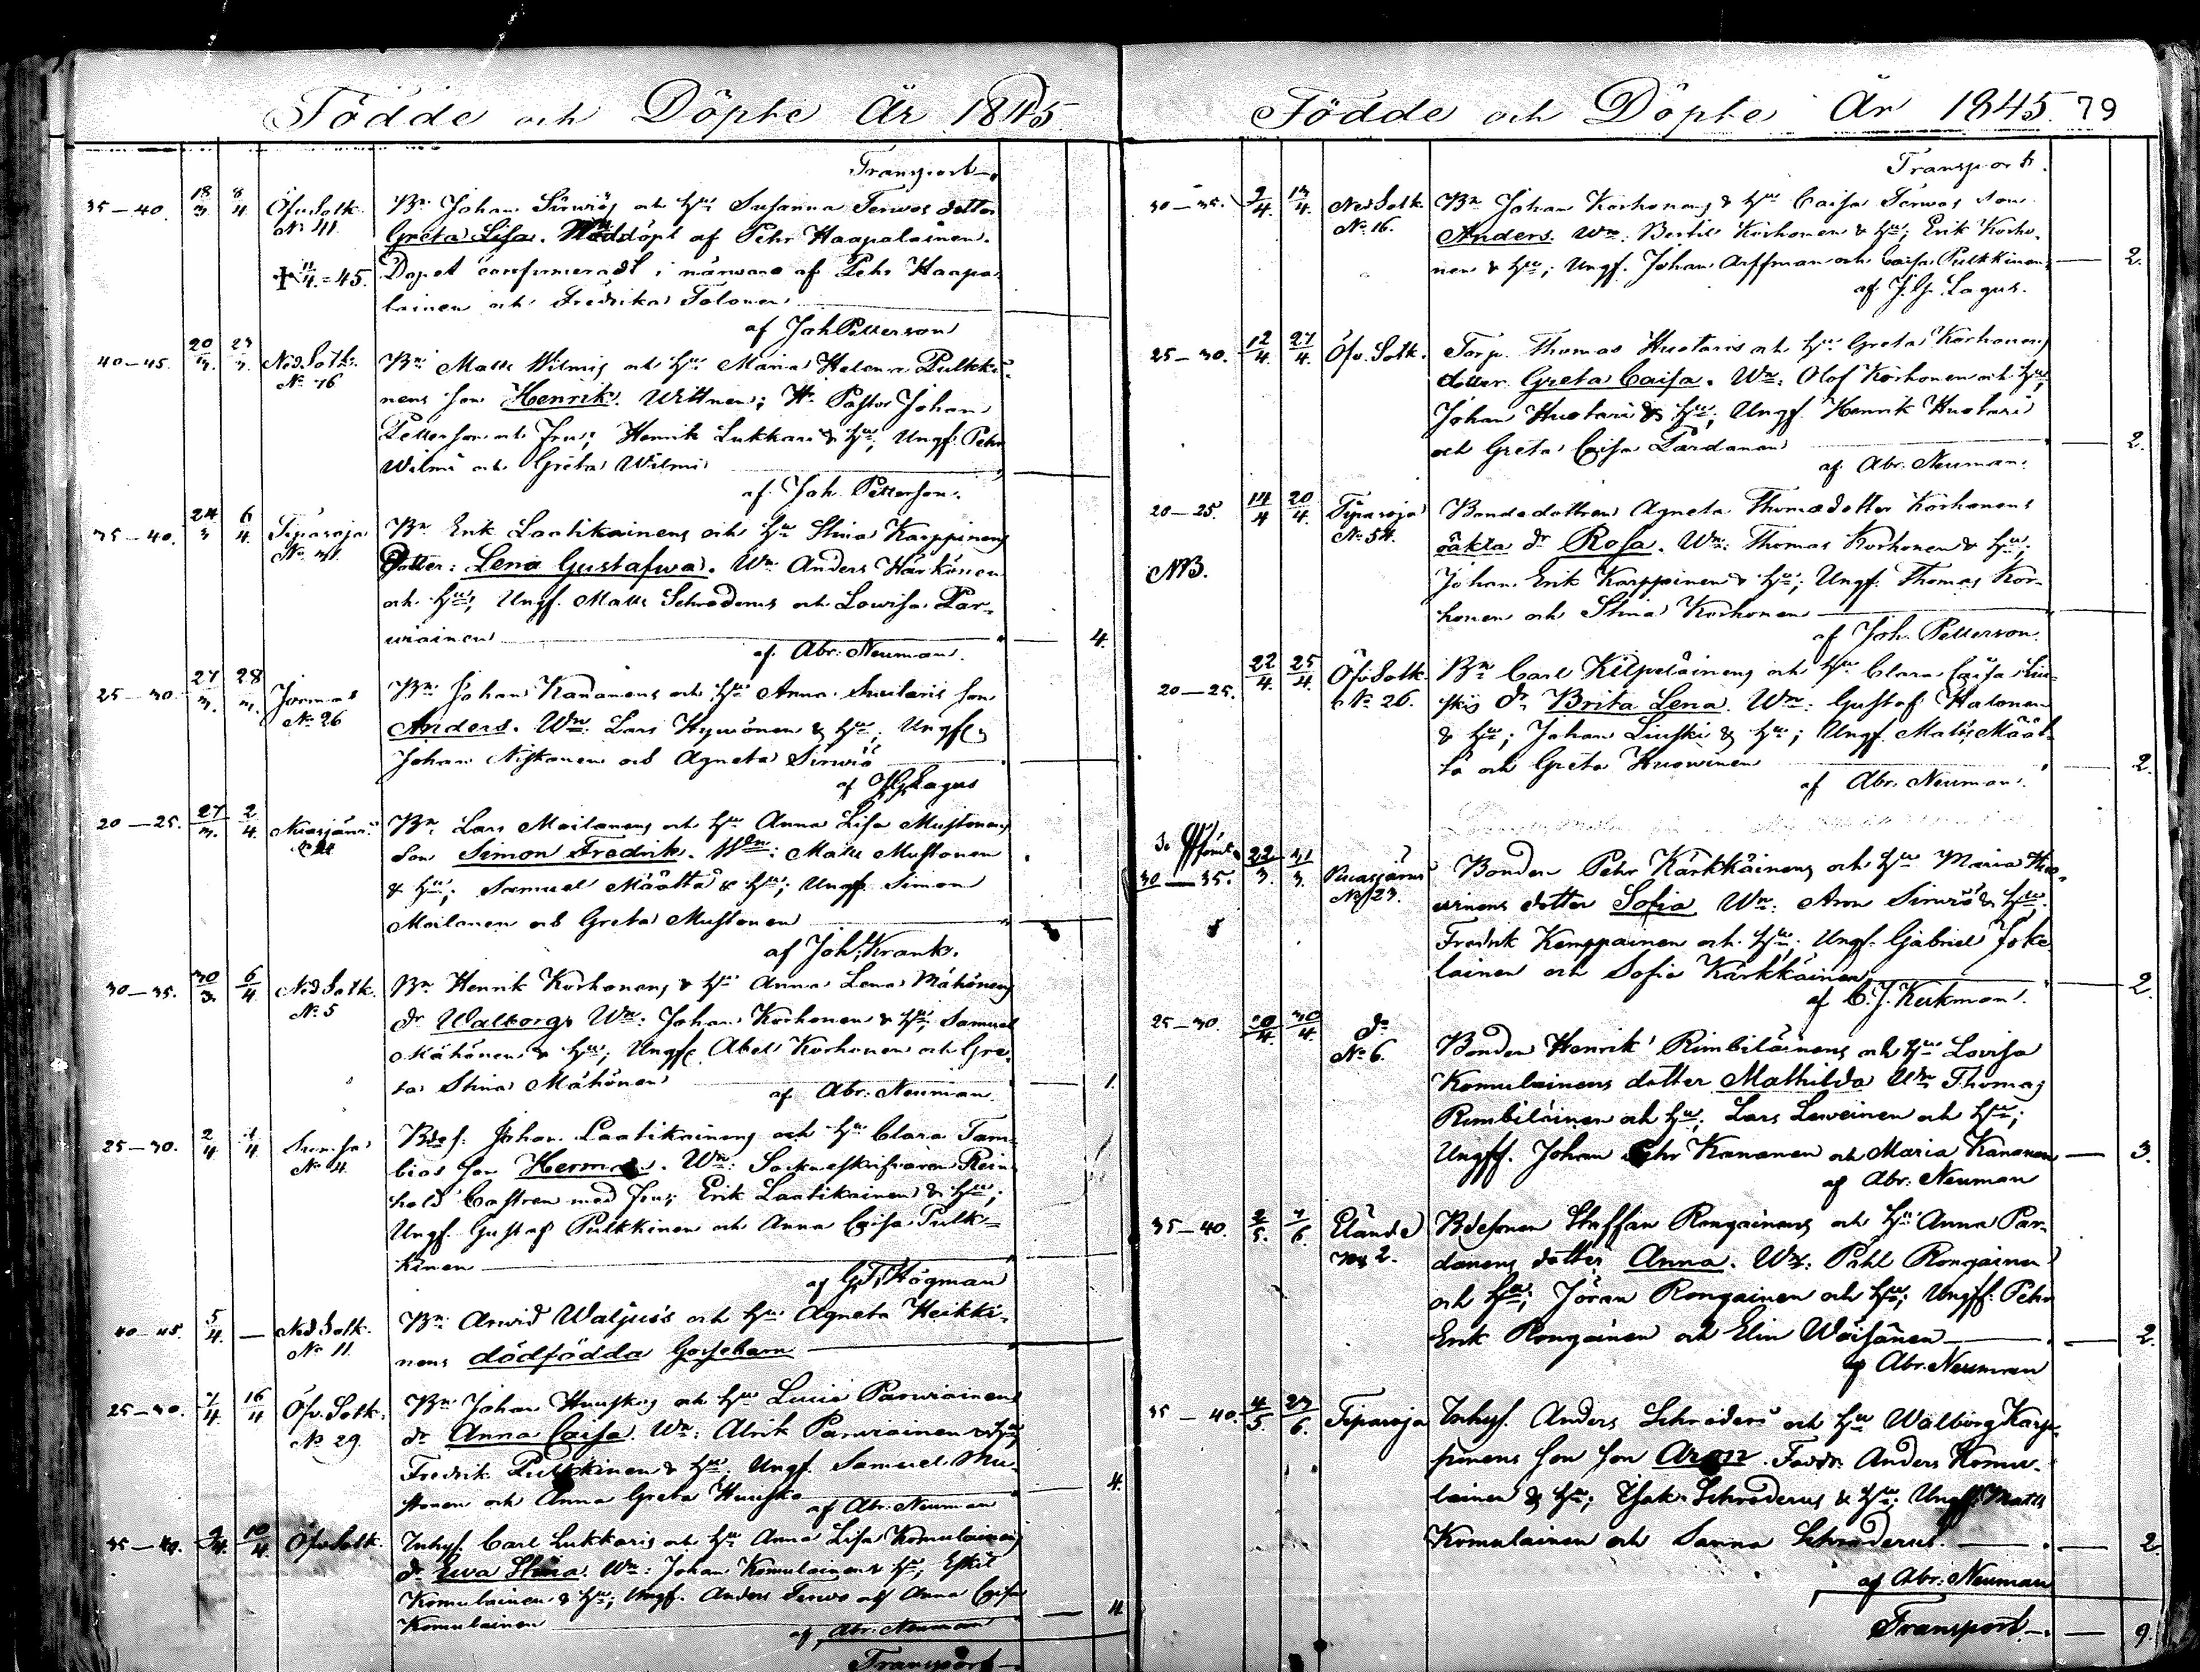 Födde och Döpte År 1845
Transport
35–40. 18/3 8/4 Öfv.Sotk. Bn Johan Sirwiös och Hu Susanna Terwos dotter
No 41. Greta Lisa. Nöddöpt af Pehr Haapalainen.
† 11/4 =45. Dopet confirmeradt i närwaro af Pehr Haapa-
lainen och Fredrika Tolonen
af Joh Petterson
40–45. 20/3 23/3 Ned Sotk. Bn Matts Wilmis och Hu Maria Helena Pulkki-
No 16 nens son Henrik. Wittnen; Hr Pastor Johan
Petterson och Fru; Henrik Lukkari & Hu; Ungf. Pehr
Wilmi och Greta Wilmi
af Joh. Petterson.
35–40. 24/3 6/4 Tiparoja Bn Erik Laatikainens och Hu Stina Karppinens
No 31. Dotter: Lena Gustafwa. Wn Anders Härkönen
och Hu; Ungf. Matts Schroderus och Lowisa Par-
wiainen 4.
af Abr: Neuman.
25–30. 27/3 28/3 Jormas Bn Johan Kananens och Hu Anna Huotaris son
No 26 Anders. Wn: Lars Hywönen & Hu; Ungf.
Johan Niskanen och Agneta Sirwiö
af J.G. Lagus
20–25. 27/3 2/4 Nuasjärvi Bn Lars Moilanens och Hu Anna Lisa Mustonens
Son Simon Fredrik. Wn: Matts Mustonen
& Hu; Samuel Määttä & Hu; Ungf. Simon
Moilanen och Greta Mustonen
af Joh: Krank.
30–35. 30/3 6/4 Ned Sotk. Bn Henrik Korhonens & Hu Anna Lena Mähönens
No 5 dr Walborg. Wn: Johan Korhonen & Hu; Samuel
Mähönen & Hu; Ungf. Abel Korhonen och Gre-
ta Stina Mähönen 1.
af Abr: Neuman.
25–30. 2/4 4/4 Sumsa Bdes: Johan Laatikainens och Hu Clara Tam-
No 4. bias son Herman. Wn: Sockneskrifvaren Rein-
hold Castren med Fru; Erik Laatikainen & Hu;
Ungf. Gustaf Pulkkinen och Anna Caisa Pulk-
kinen
af G.T. Högman
40–45. 5/4 — Ned Sotk. Bn Arwid Waljus's och Hu Agneta Heikki-
No 11. nens dödfödda Gossebarn
25–30. 7/4 16/4 Öfv. Sotk. Bn Johan Huuskos och Hu Lucia Parwiainens
No 29. dr Anna Caisa. Wn: Alrik Parwiainen & Hu;
Fredrik Pulkkinen & Hu; Ungf. Samuel Mu-
stonen och Anna Greta Huusko 4.
af Abr. Neuman
35–40. 9/4 10/4 Öfv Sotk. Inhys. Carl Lukkaris och Hu Anna Lisa Komulainens
dr Ewa Stina. Wn: Johan Komulainen & Hu; Eskil
Komulainen & Hu; Ungf. Anders Terwo och Anna Caisa
Komulainen 11
af Abr. Neuman
Transport
Födde och Döpte År 1845. 79
Transport.
30–35. 9/4 13/4 Ned Sotk. Bn Johan Korhonens & Hu Caisa Terwos son
No 16. Anders. Wn: Bertil Korhonen & Hu; Erik Korho-
nen & Hu; Ungf. Johan Arffman och Caisa Pulkkinen 2.
af J.G. Lagus.
25–30. 12/4 27/4 Öfv. Sotk. Torp. Thomas Huotaris och Hu Greta Korhonens
dotter Greta Caisa. Wn: Olof Korhonen och Hu;
Johan Huotari & Hu; Ungf. Henrik Huotari
och Greta Caisa Pardanen 2.
af Abr. Neuman.
20–25. 14/4 20/4 Tiparoja Bondedottren Agneta Thomædotter Korhonens
No 54. oäkta dr Rosa. Wn: Thomas Korhonen & Hu;
NB. Johan Erik Karppinen & Hu; Ungf. Thomas Kor-
honen och Stina Korhonen
af Joh. Petterson.
20–25. 22/4 25/4 Öfv Sotk. Bn Carl Kilpeläinens och Hu Clara Caisa Liu-
No 26. skis dr Brita Lena. Wn: Gustaf Halonen
& Hu; Johan Liuski & Hu; Ungf. Matts Määt-
tä och Greta Huowinen 2.
af Abr. Neuman.
30–35. 22/3 31/3 Nuasjärvi Bonden Pehr Kärkkäinens och Hu Maria Huo-
No 23. winens dotter Sofia. Wn: Aron Sirwiö & Hu;
Fredrik Kemppainen och Hu; Ungf. Gabriel Joke-
lainen och Sofia Kärkkäinen 2.
af C.J. Kerkman.
25–30. 10/4 30/4 do Bonden Henrik Rimbiläinens och Hu Lovisa
No 6. Komulainens dotter Mathilda Wn Thomas
Rimbiläinen och Hu; Lars Leweinen och Hu;
Ungff. Johan Pehr Kananen och Maria Kananen 3.
af Abr. Neuman
35–40. 2/5 7/6 Elände Bdesonen Staffan Rongainens och Hu Anna Par-
No 2. danens dotter Anna. Wn: Påhl Rongainen
och Hu; Jöran Rongainen och Hu; Ungff. Pehr
Erik Rongainen och Elin Wäisänen 2.
af Abr. Neuman
35–40. 4/5 23/6 Tiparoja Inhys. Anders Schroderi och Hu Walborg Karp-
pinens son son Aron. Faddr. Anders Komu-
lainen & Hu; Isak Schroderus & Hu; Ungff. Matts
Komulainen och Sanna Schroderus. 2.
af Abr: Neuman
Transport 9.